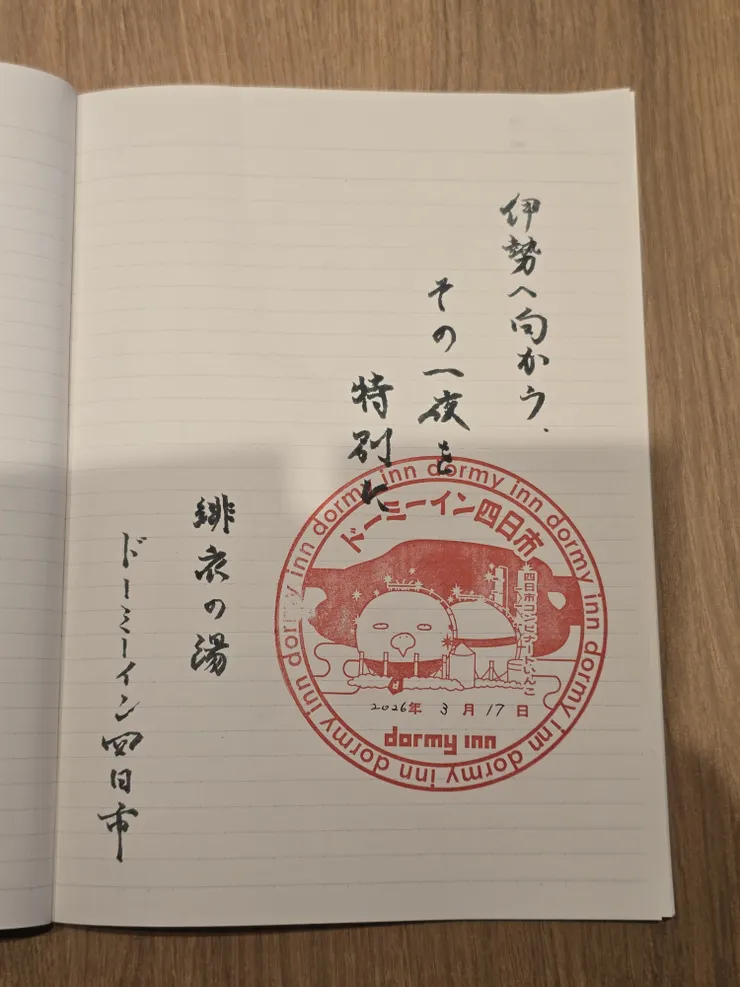 伊勢へ向かう、
その一夜を
特別に
緋衣の湯
ドーミーイン四日市
dormy inn dormy inn dormy inn dormy inn dormy inn dormy inn dormy inn dormy inn
ドーミーイン四日市
四日市コンビナートいんこ
2026年 3月17日
dormy inn